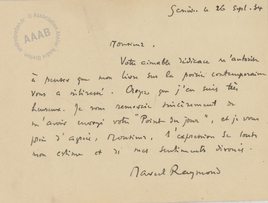 Genève, le 26 Sept. 34
AAAB
Monsieur,
Votre aimable dédicace m'autorise
à penser que mon livre sur la poésie contemporaine
vous a intéressé. Croyez que j'en suis très
heureux. Je vous remercie sincèrement de
m'avoir envoyé votre "Point du jour", et je vous
prie d'agréer, Monsieur, l'expression de toute
mon estime et de mes sentiments dévoués.
Marcel Raymond